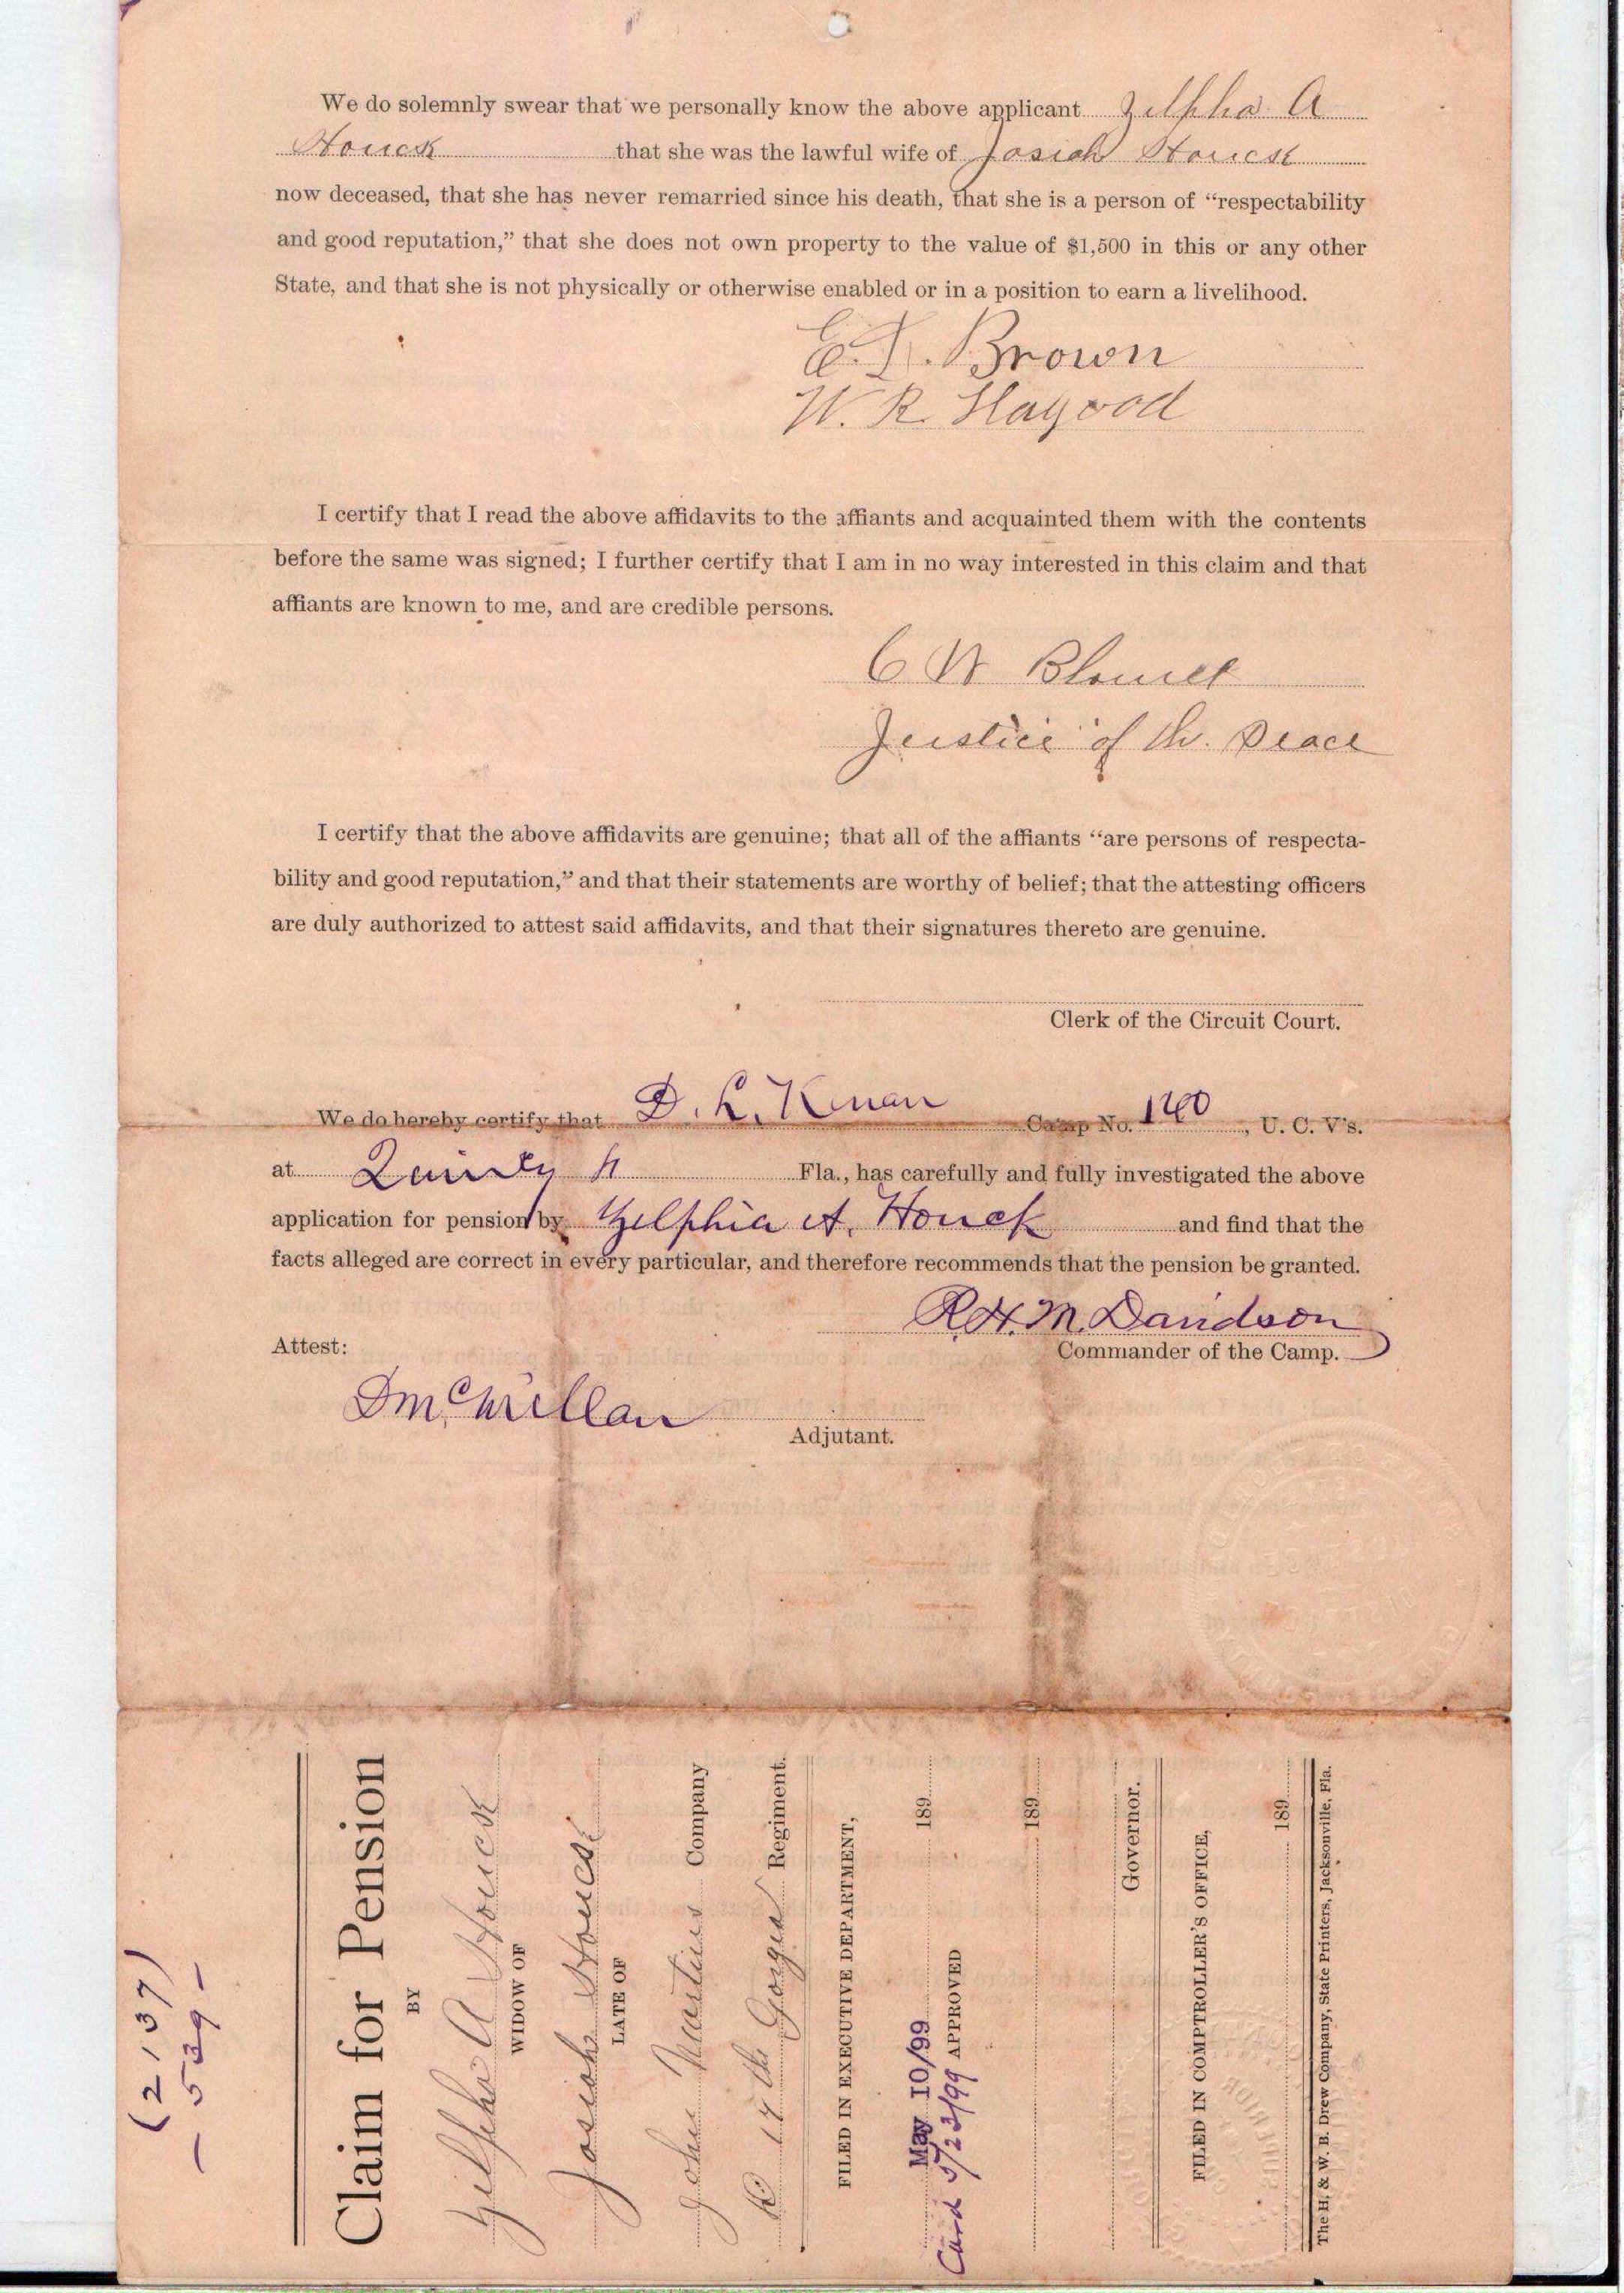 We do solemnly swear that we personally know the above applicant Zilpha A
Houck that she was the lawful wife of Josiah Houck
now deceased, that she has never remarried since his death, that she is a person of “respectability
and good reputation,” that she does not own property to the value of $1,500 in this or any other
State, and that she is not physically or otherwise enabled or in a position to earn a livelihood.
E. L. Brown
W. R. Hagood
I certify that I read the above affidavits to the affiants and acquainted them with the contents
before the same was signed; I further certify that I am in no way interested in this claim and that
affiants are known to me, and are credible persons.
C W Blount
Justice of th. Peace
I certify that the above affidavits are genuine; that all of the affiants “are persons of respecta-
bility and good reputation,” and that their statements are worthy of belief; that the attesting officers
are duly authorized to attest said affidavits, and that their signatures thereto are genuine.
Clerk of the Circuit Court.
We do hereby certify that D. L. Kenan Camp No. 140, U. C. V's.
at Quincy Fla., has carefully and fully investigated the above
application for pension by Zelphia A. Houck and find that the
facts alleged are correct in every particular, and therefore recommends that the pension be granted.
R. H. M. Davidson
Attest: Commander of the Camp.
D McMillan
Adjutant.
(2137)
- 539 -
Claim for Pension
BY
Zilpha A Houck
WIDOW OF
Josiah Houck
LATE OF
John Martins Company
17th Georgia Regiment.
FILED IN EXECUTIVE DEPARTMENT,
May 10/99 189
Card 5/23/99 APPROVED
189
Governor.
FILED IN COMPTROLLER'S OFFICE,
189
The H. & W. B. Drew Company, State Printers, Jacksonville, Fla.